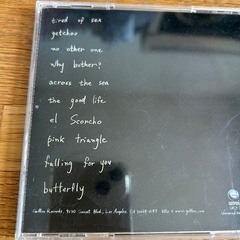 tired of sex
getchoo
no other one
why bother?
across the sea
the good life
el Scorcho
pink triangle
falling for you
butterfly
Geffen Records, 9130 Sunset Blvd., Los Angeles, CA